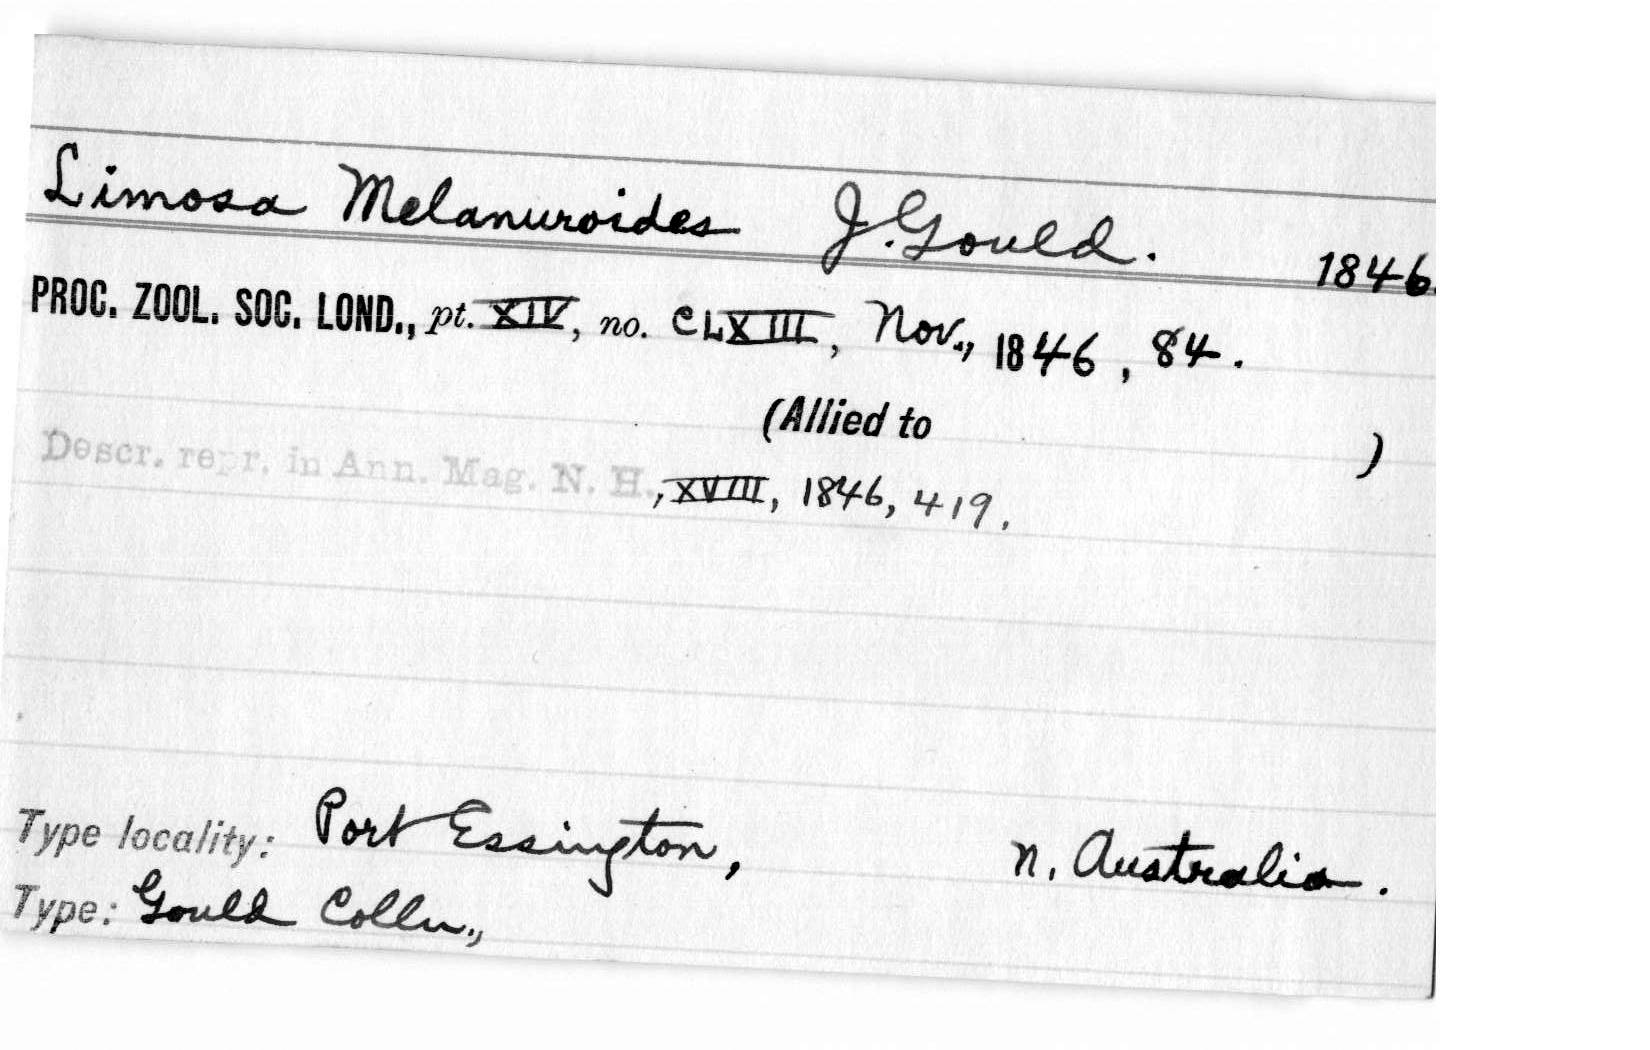 Limosa Melanuroides J. Gould. 1846.
PROC. ZOOL. SOC. LOND., pt. XIV, no. CLXIII, Nov., 1846, 84.
(Allied to )
Descr. repr. in Ann. Mag. N. H., XVIII, 1846, 419.
Type locality: Port Essington, N. Australia.
Type: Gould Colln.,